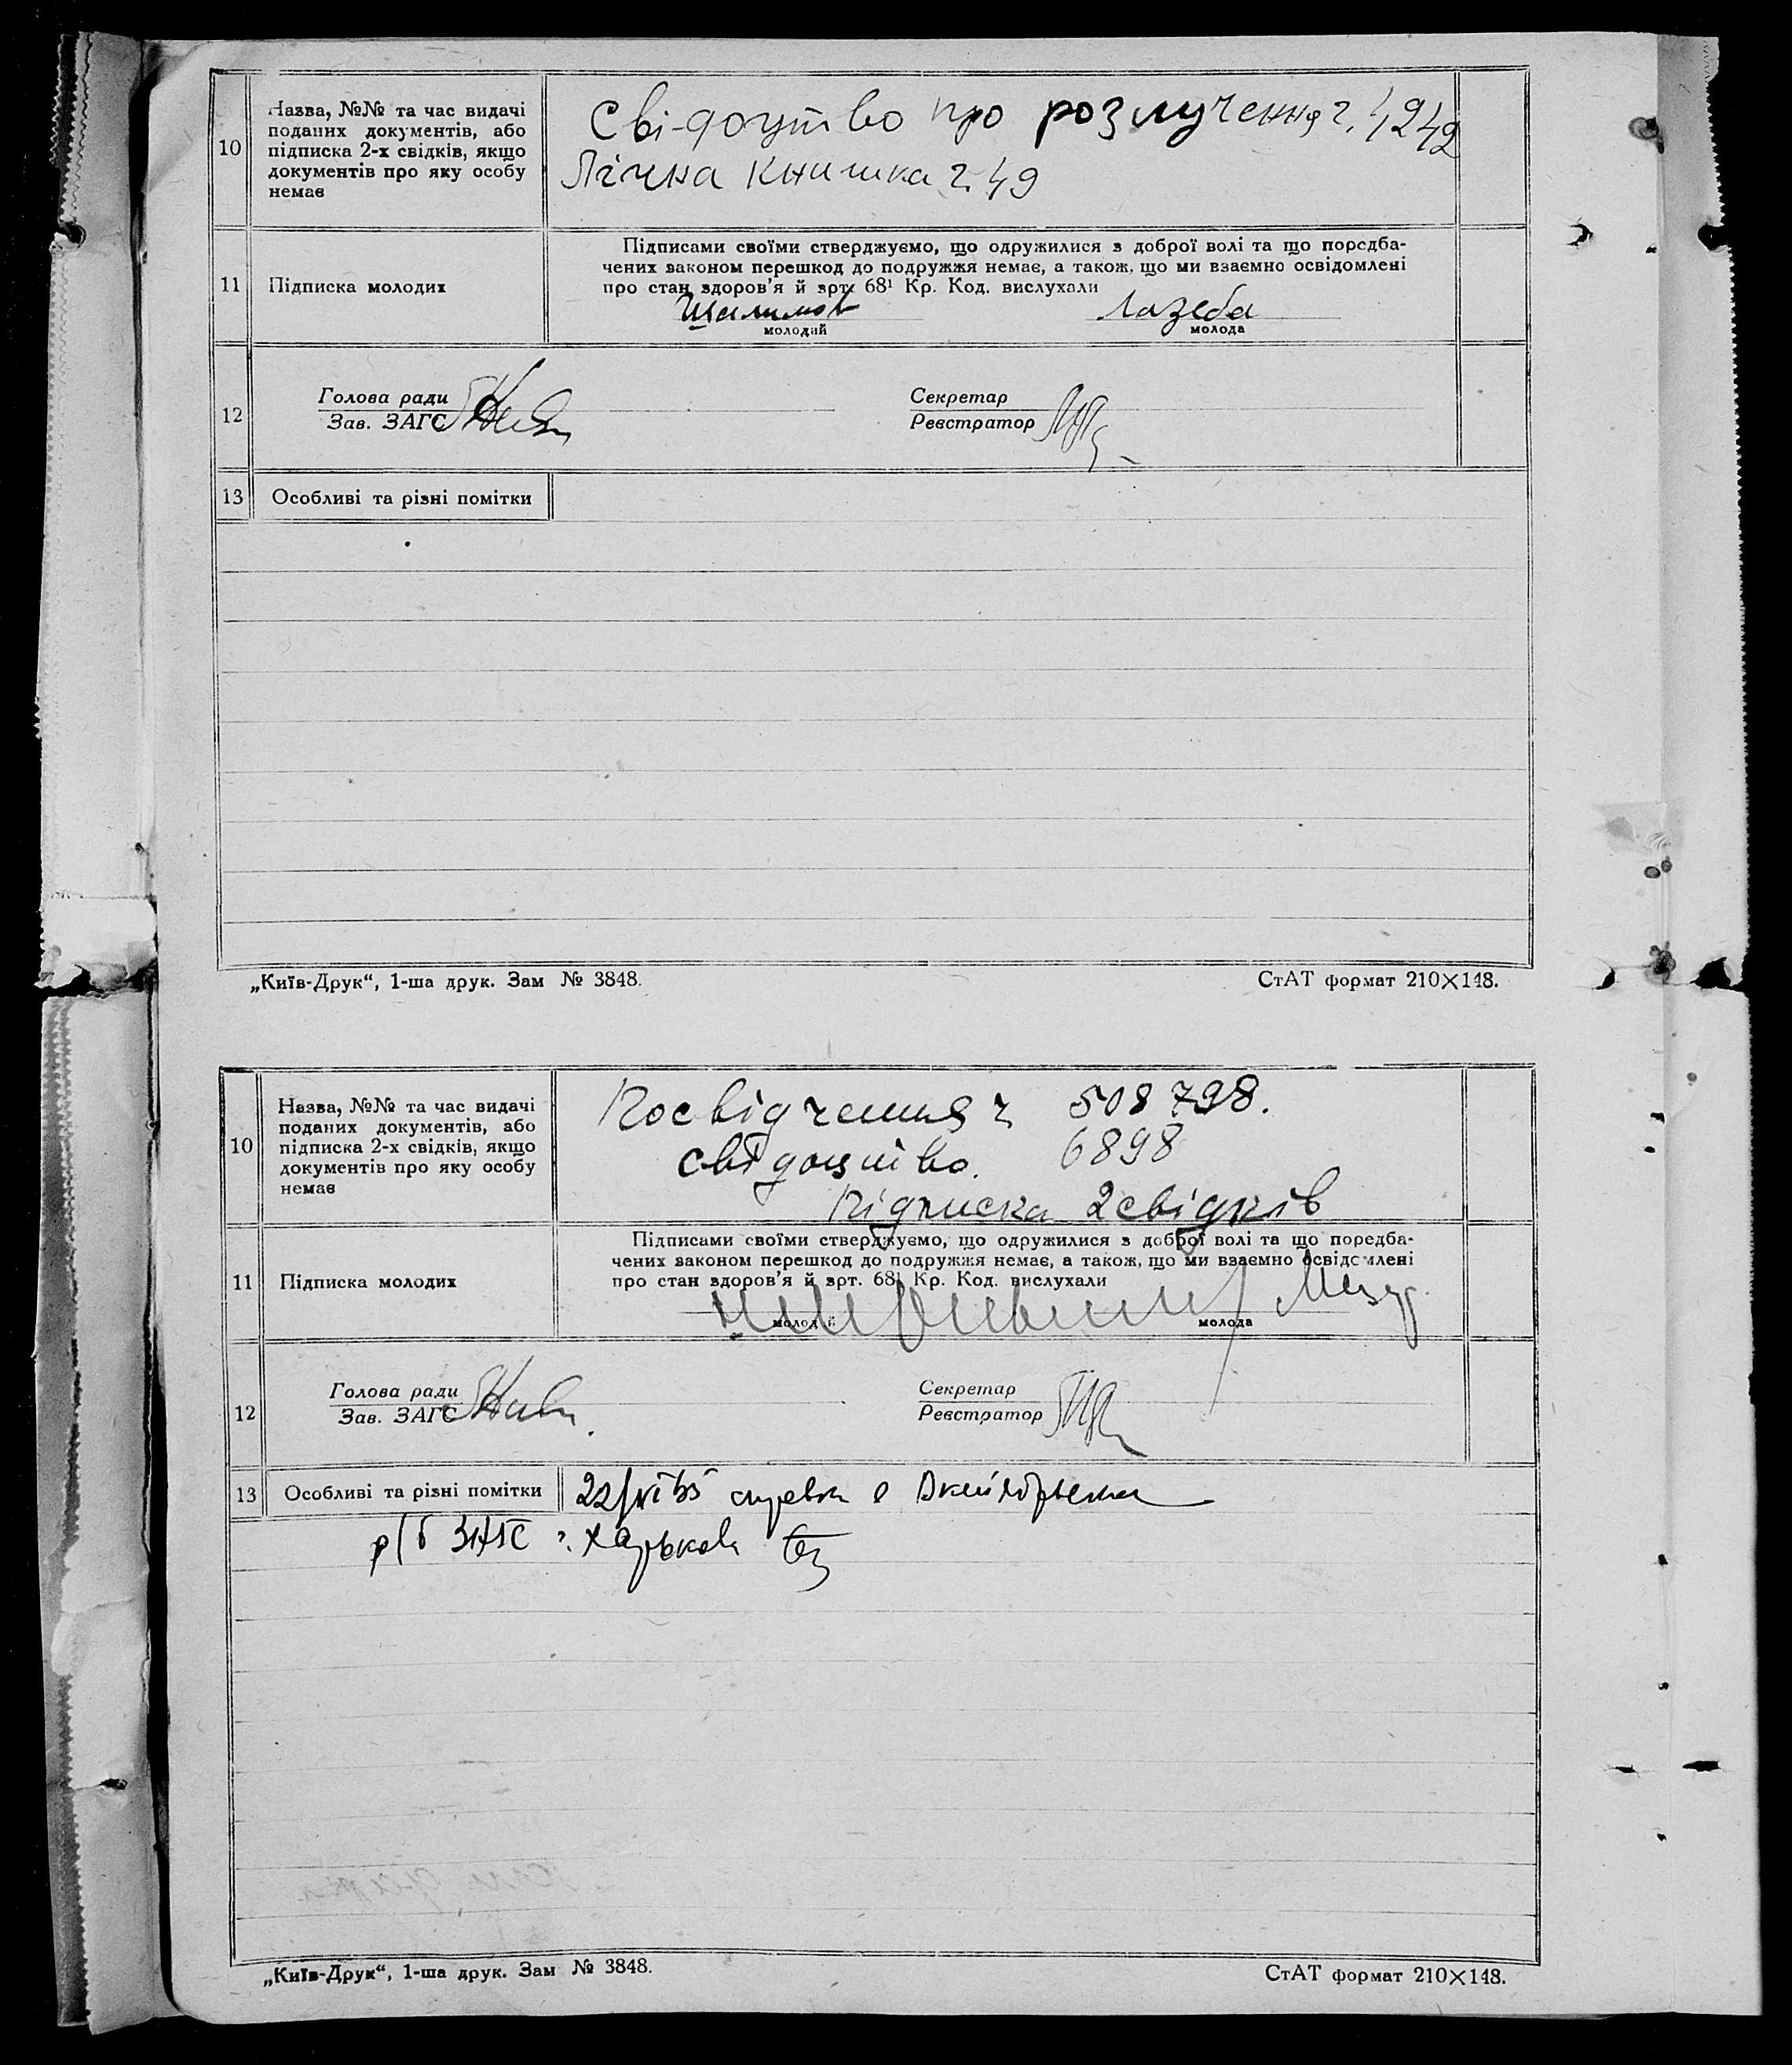 10
Назва, №№ та час видачі
поданих документів, або
підписка 2-х свідків, якщо
документів про яку особу
немає
Сві-доцтво про розлучення ч. 4242
Лічна книжка ч. 49
11
Підписка молодих
Підписами своїми стверджуємо, що одружилися з доброї волі та що поредба-
чених законом перешкод до подружжя немає, а також, що ми взаємно освідомлені
про стан здоров'я й арт. 68¹ Кр. Код. вислухали
Лазеба
молодий
молода
12
Голова ради
Зав. ЗАГС
Секретар
Реєстратор
13
Особливі та різні помітки
„Київ-Друк“, 1-ша друк. Зам № 3848.
СтАТ формат 210×148.
10
Назва, №№ та час видачі
поданих документів, або
підписка 2-х свідків, якщо
документів про яку особу
немає
Посвідчення ч 508798.
свідоцтво. 6898
Підписка 2 свідків
11
Підписка молодих
Підписами своїми стверджуємо, що одружилися з доброї волі та що поредба-
чених законом перешкод до подружжя немає, а також, що ми взаємно освідомлені
про стан здоров'я й арт. 68¹ Кр. Код. вислухали
молодий
молода
12
Голова ради
Зав. ЗАГС
Секретар
Реєстратор
13
Особливі та різні помітки
р/б ЗАГС г. Харькова
„Київ-Друк“, 1-ша друк. Зам № 3848.
СтАТ формат 210×148.